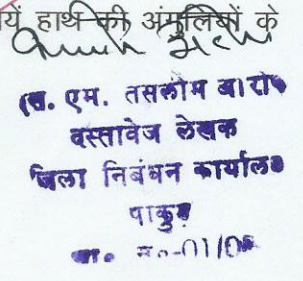 यें हाथ की अंगुलियों के
(स. एम. तसलीम
दस्तावेज लेखक
जिला निबंधन कार्यालय
पाकुड़